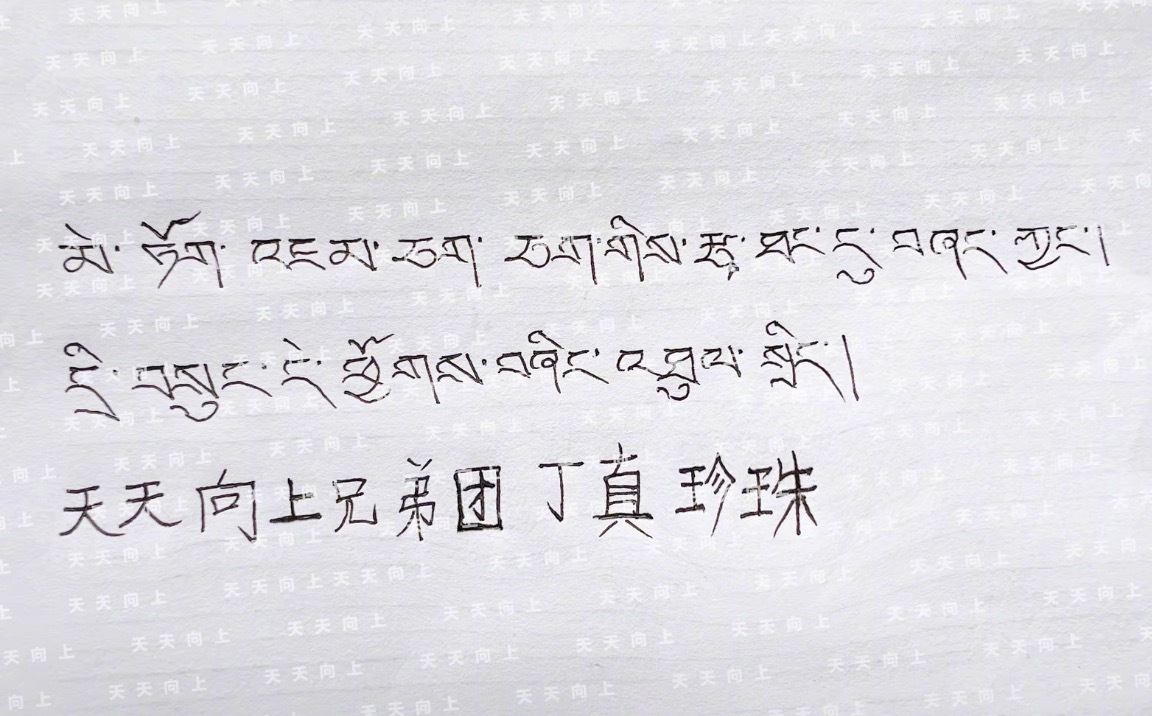 མེ་ཏོག་འཇམ་ཅག་ཅག་གིས་རྩྭ་ཐང་དུ་བཞད་ཀྱང་།
དྲི་བསུང་ངེ་ཕྱོགས་བཞིར་འཐུལ་
天天向上兄弟团 丁真珍珠